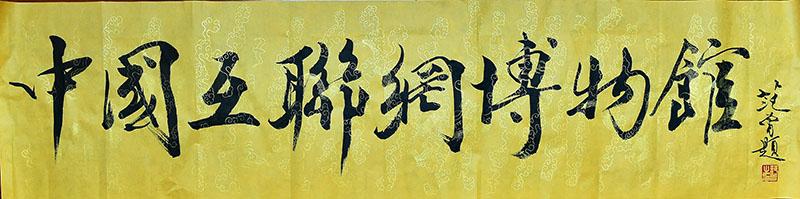 中國互聯網博物館
范曾題